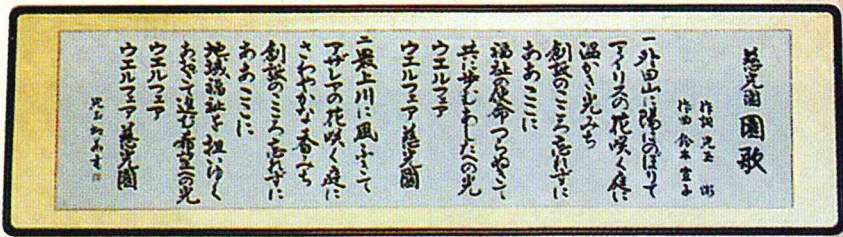 慈光園 園歌
作詞 児玉 衛
作曲 鈴木 宣子
一 外田山に陽はのぼりて
アイリスの花咲く庭に
温かき光みち
創設のこころ忘れずに
ああここに
福祉の使命つらぬきて
共に歩むあしたへの光
ウエルフェア
ウエルフェア慈光園
二 最上川に風ふきて
アザレアの花咲く庭に
さわやかな香みち
創設のこころ忘れずに
ああここに
地域福祉を担いゆく
あおぎて進む希望への光
ウエルフェア
ウエルフェア慈光園